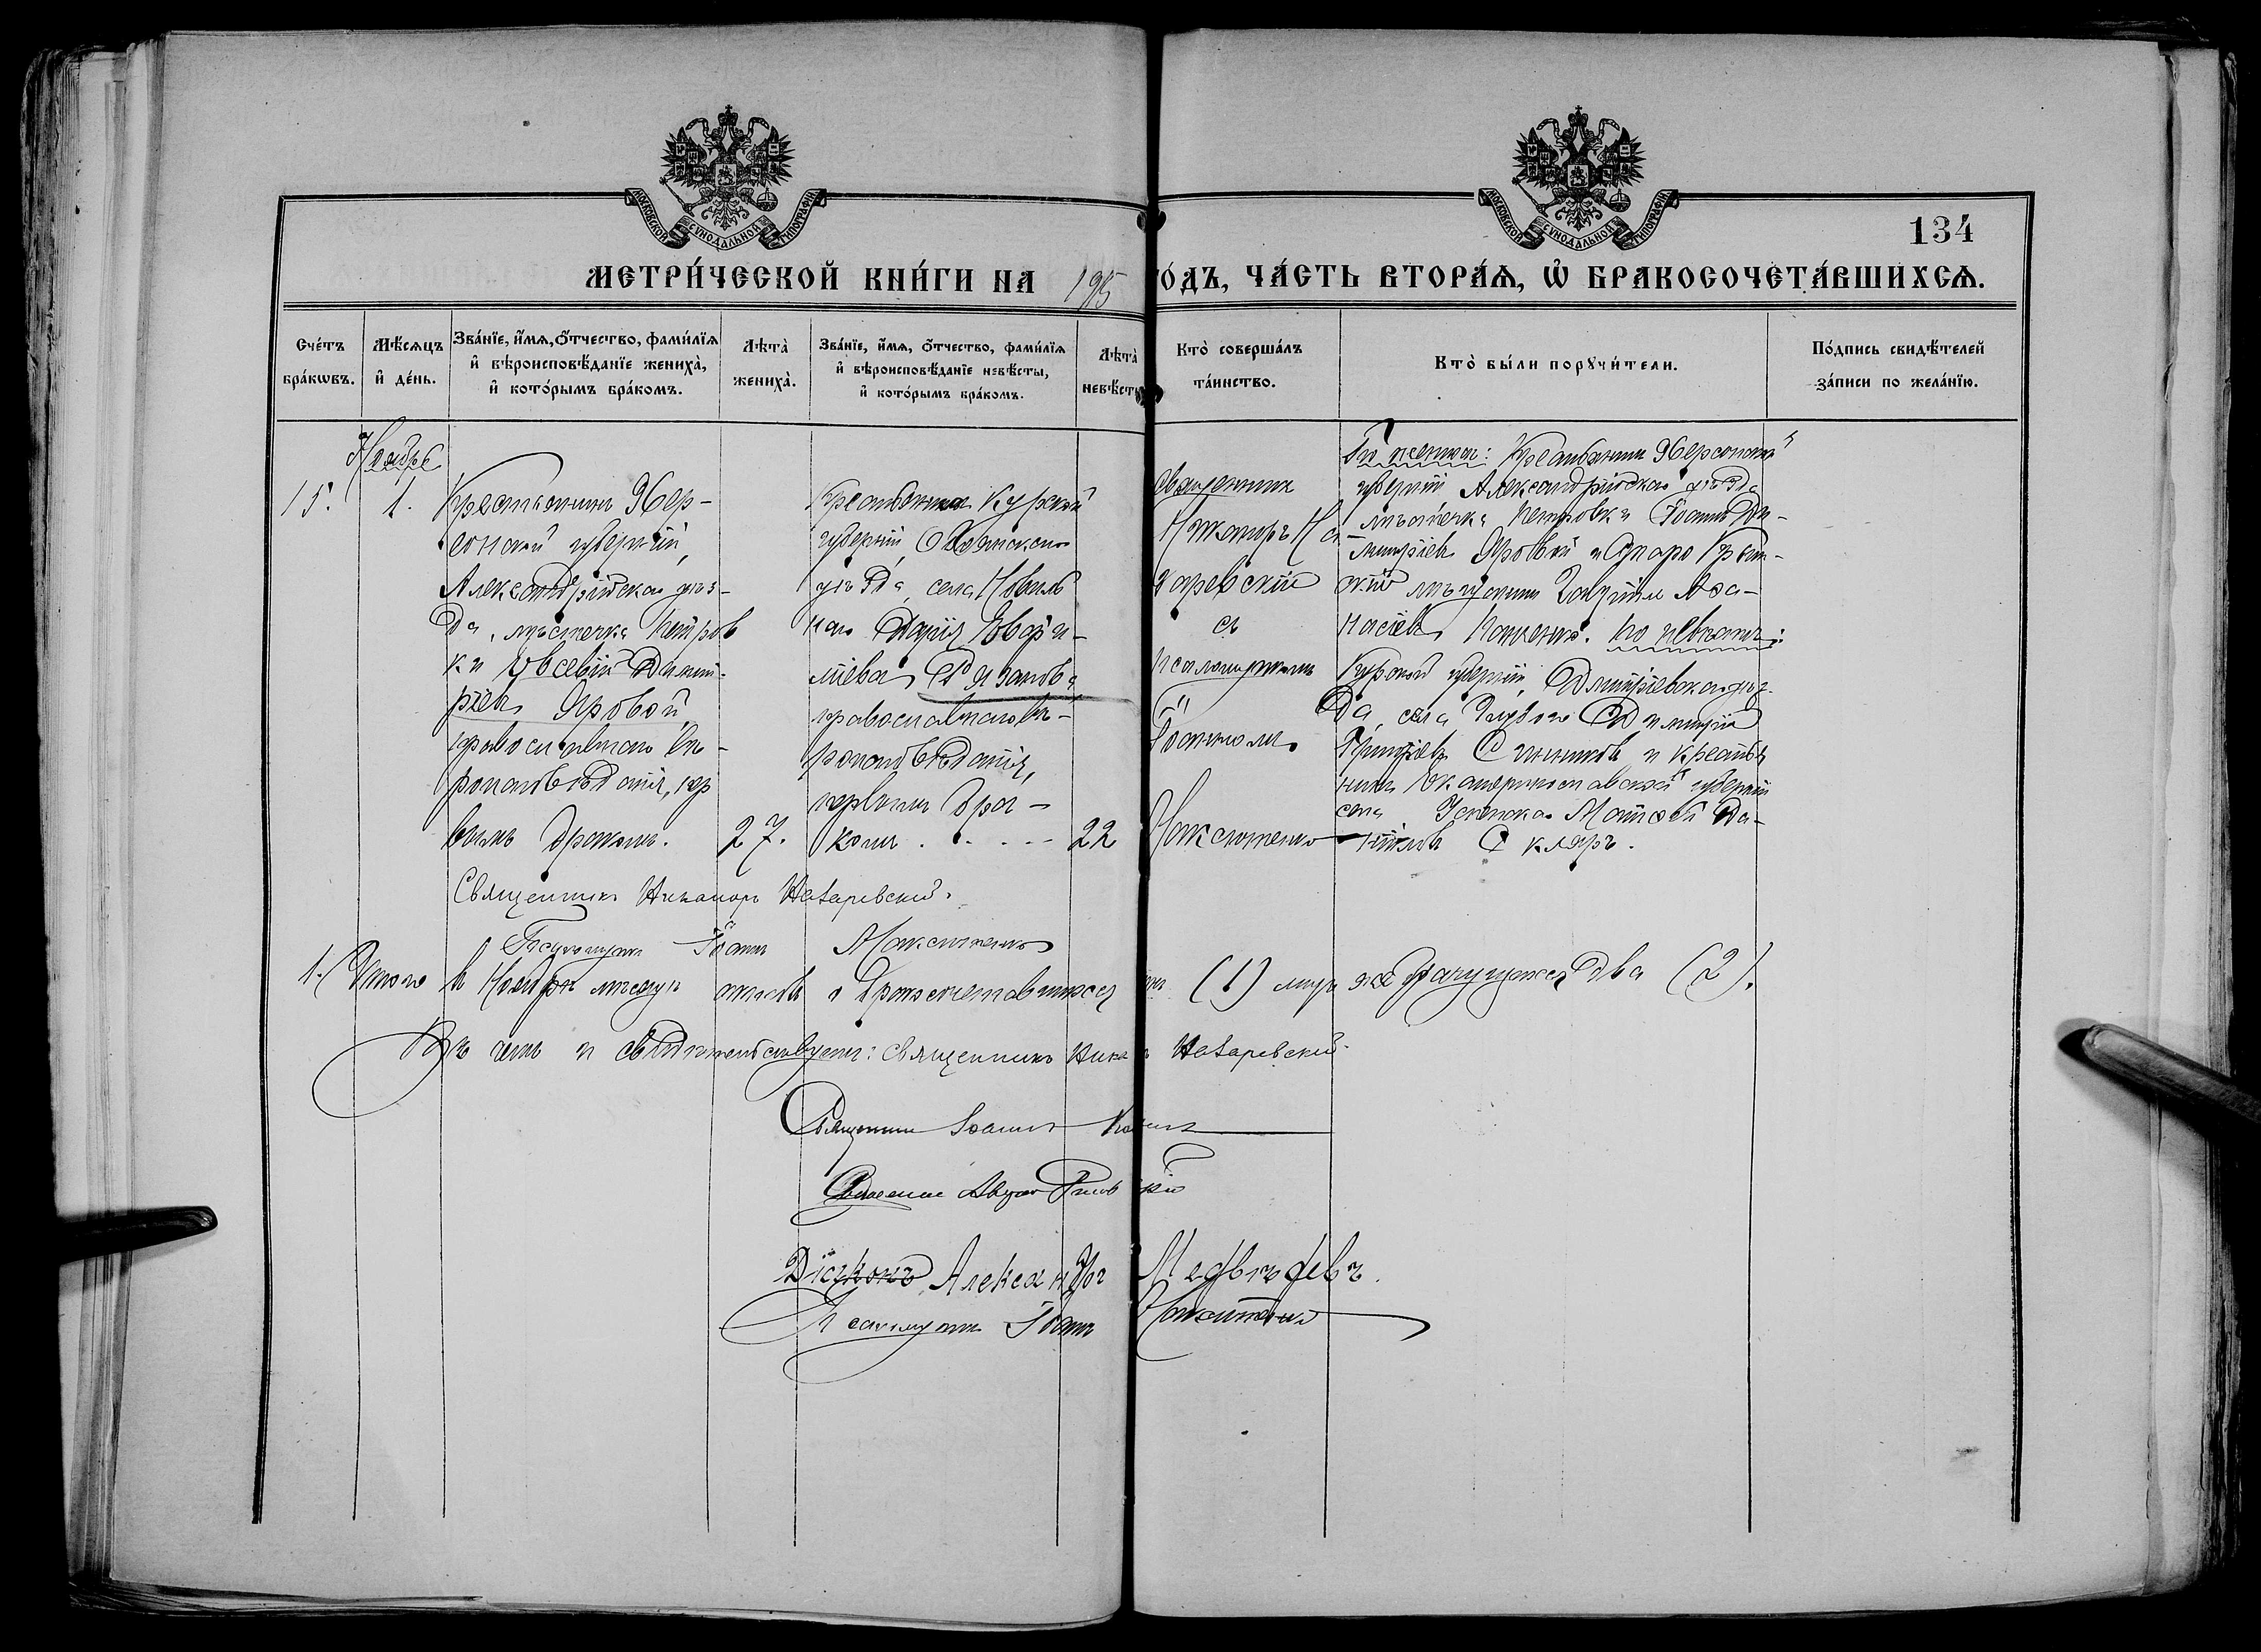 МОСКОВСКОЙ СѴНОДАЛЬНОЙ ТИПОГРАФІИ
МОСКОВСКОЙ СѴНОДАЛЬНОЙ ТИПОГРАФІИ
134
МЕТРИ́ЧЕСКОЙ КНИ́ГИ НА 1915
ГО́ДЪ, ЧА́СТЬ ВТОРА́Ѧ, Ѽ БРАКОСОЧЕТА́ВШИХСѦ.
Сче́тъ бра́кѡвъ.
Мѣ́сяцъ и҆ де́нь.
Зва́нїе, и҆́мѧ, ѻ҆́тчество, фами́лїѧ и҆ вѣроисповѣ́данїе жениха̀, и҆ кото́рымъ бра́комъ.
Лѣта̀ жениха̀.
Зва́нїе, и҆́мѧ, ѻ҆́тчество, фами́лїѧ и҆ вѣроисповѣ́данїе невѣ́сты, и҆ кото́рымъ бра́комъ.
Лѣта̀ невѣ́сты
Кто̀ соверша́лъ та́инство.
Кто̀ бы́ли порꙋчи́тели.
По́дпись свидѣ́телей за́писи по жела́нїю.
Ноябрь
15.
1.
Крестьянинъ Хер-
сонской губерніи,
Александрійскаго уѣз-
да, мѣстечка Петров
ки Евсевій Димит-
ріевъ Яровой,
православнаго вѣ-
роисповѣданія, пер
вымъ бракомъ.
27.
Крестьянка Курской
губерніи, Обоянскаго
уѣзда, села
Дарія
православнаго вѣ-
роисповѣданія,
первымъ бра-
комъ . . . . . -
22
Священникъ
Никаноръ На-
заревскій
съ
псаломщикомъ
Іоанномъ
Максименко
По женихѣ: Крестьянинъ Херсонской
губерніи Александрійскаго уѣзда
мѣстечка Петровки Іоаннъ Ди-
митріевъ Яровой и
мѣщанинъ Аѳа-
насіевъ По невѣстѣ:
Курской губерніи, Дмитріевскаго уѣз-
да, села Димитрій
и крестья
нинъ Екатеринославской губерніи
села Успенскаго Матѳей Да-
ніиловъ Скляръ.
Священникъ Никаноръ Назаревскій.
Псаломщикъ Іоаннъ Максименко
1. Итого въ Ноябрѣ мѣсяцѣ актовъ о бракосочетавшихся (1) мужа два (2).
Въ чемъ и свидѣтельствуемъ: Священникъ Никаноръ Назаревскій.
Священникъ Іоаннъ
Священникъ
Діаконъ Александръ Медвѣдевъ.
Псаломщикъ Іоаннъ Максименко